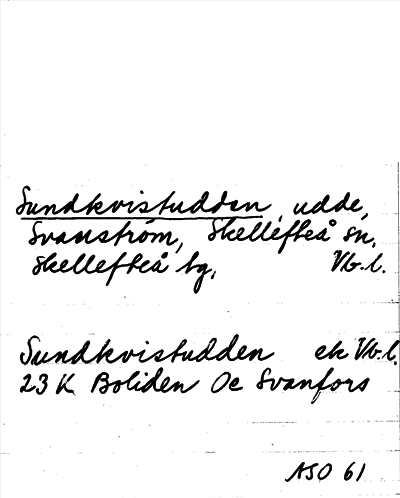 Sundkvistudden, udde,
Svanström, Skellefteå sn,
Skellefteå tg, Vb. l.
Sundkvistudden ek Vb. l.
23 K Boliden Oe Svanfors
ASO 61